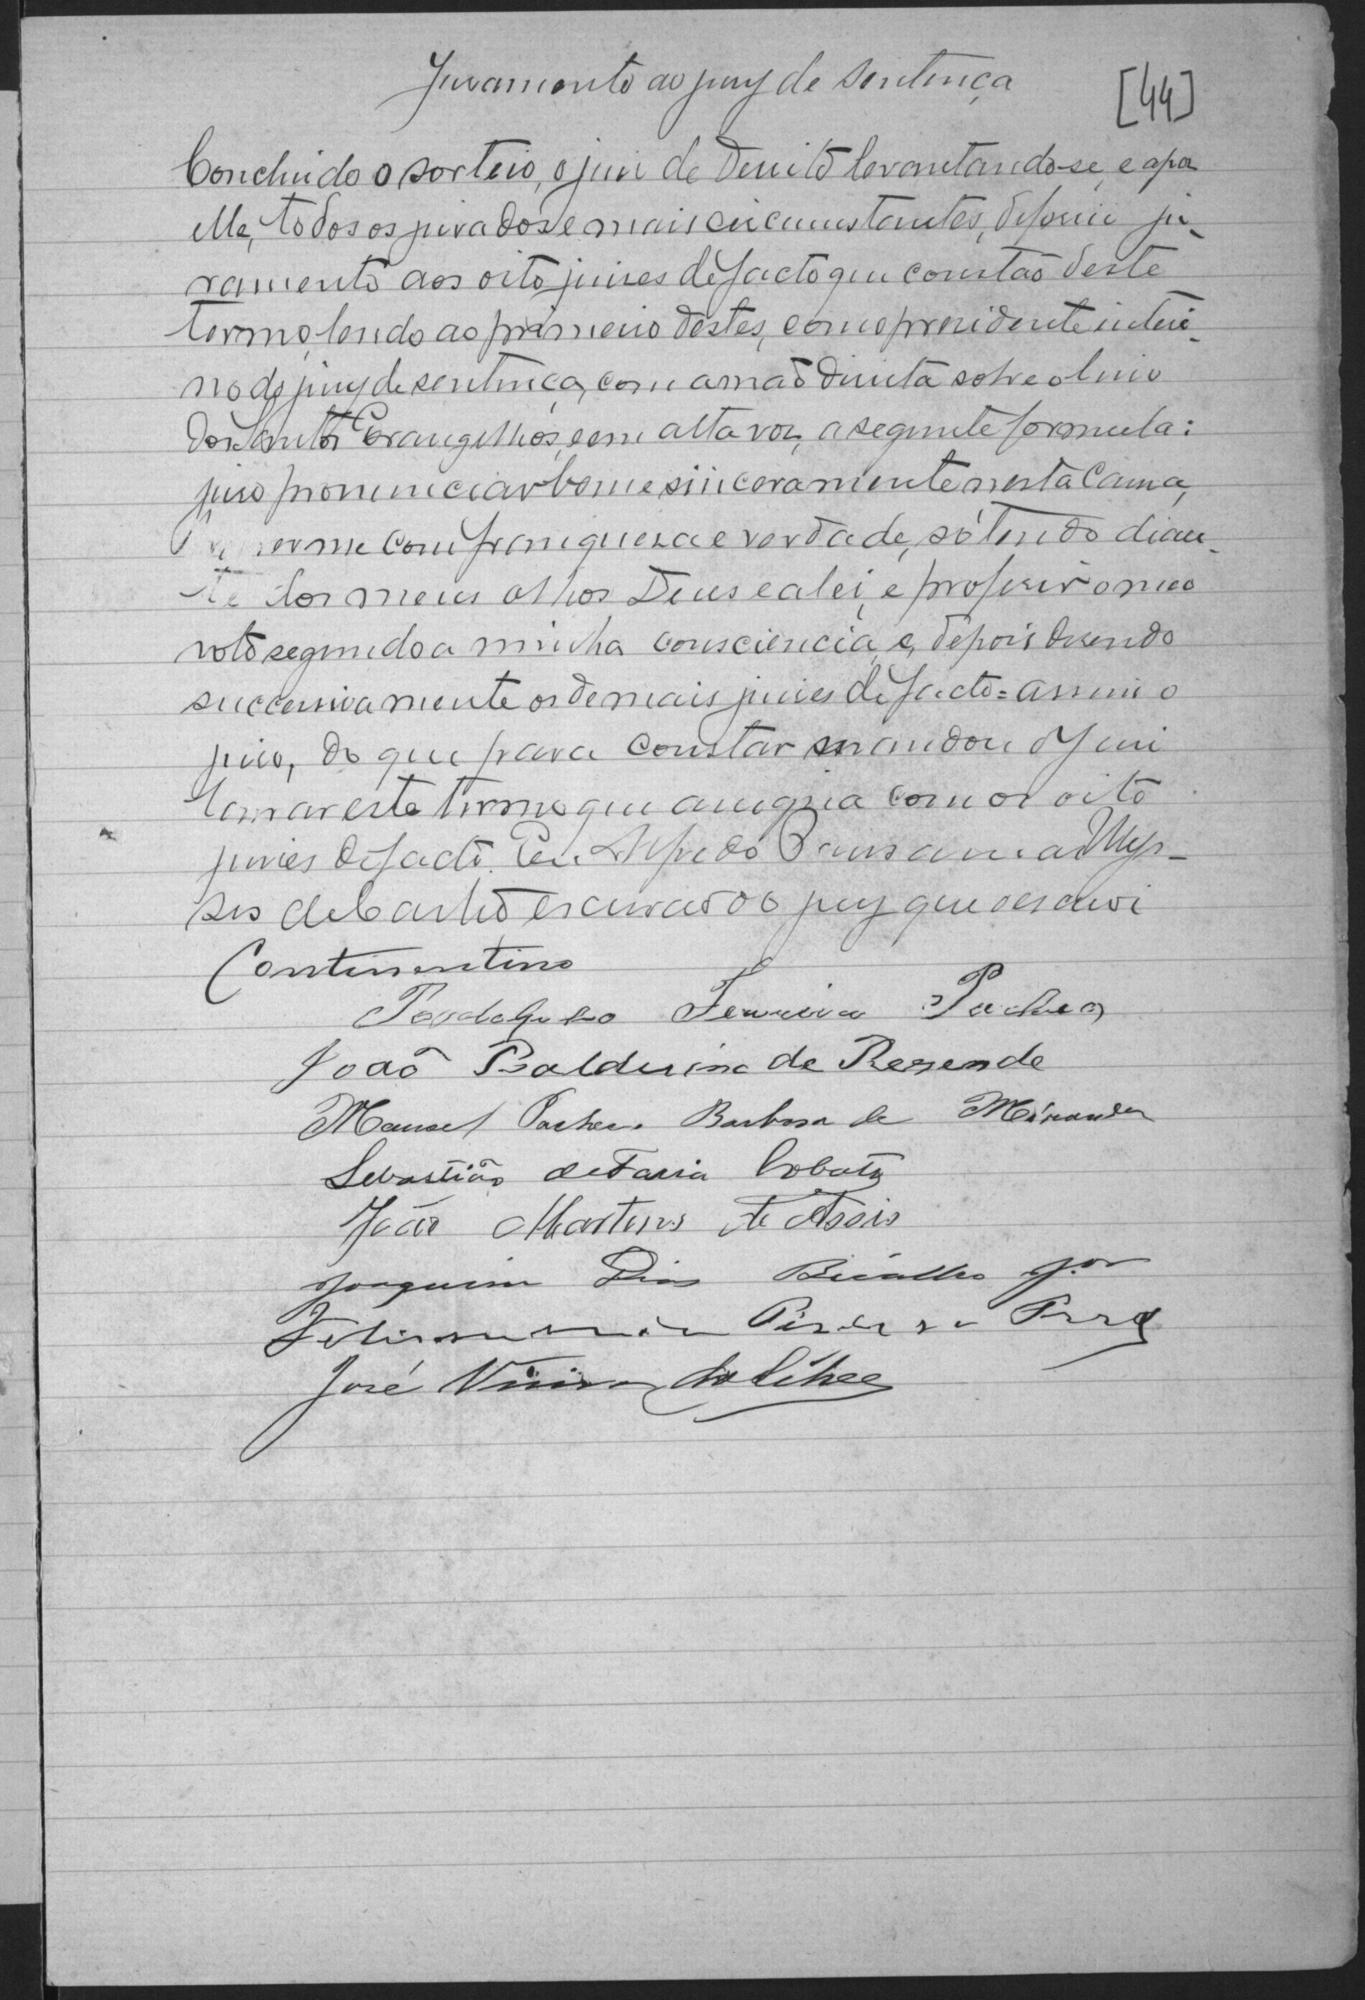 Juramento ao jury de sentença
[44]
Concluido o sorteio, o juiz de Direito levantando-se, e apoz
elle, todos os jurados e mais circumstantes, deferiu ju-
ramento aos oito juizes de facto que constão deste
termo, lendo ao primeiro destes, como presidente interi-
no do jury de sentença, com a mão direita sobre o livro
dos Santos Evangelhos, e em alta voz, a seguinte formula:
juro pronunciar bem e sinceramente nesta causa,
haver-me com franqueza e verdade, só tendo dian-
te dos meus olhos Deus e a lei, e proferir o meu
voto segundo a minha consciencia, e, depois dizendo
successivamente os demais juizes de facto = assim o
juro, do que para constar mandou o Juiz
lavrar este termo que assigna com os oito
juizes de facto. Eu Alfredo Ulys-
ses de Castro escrivão do jury que escrevi
Continentino
Ferreira Pacheco
João Balduino de Rezende
Manoel Pacheco Barbosa de Miranda
Sebastião de Faria Lobato
João Martins de Assis
Joaquim Dias Bicalho Jor
José Vieira da Silva